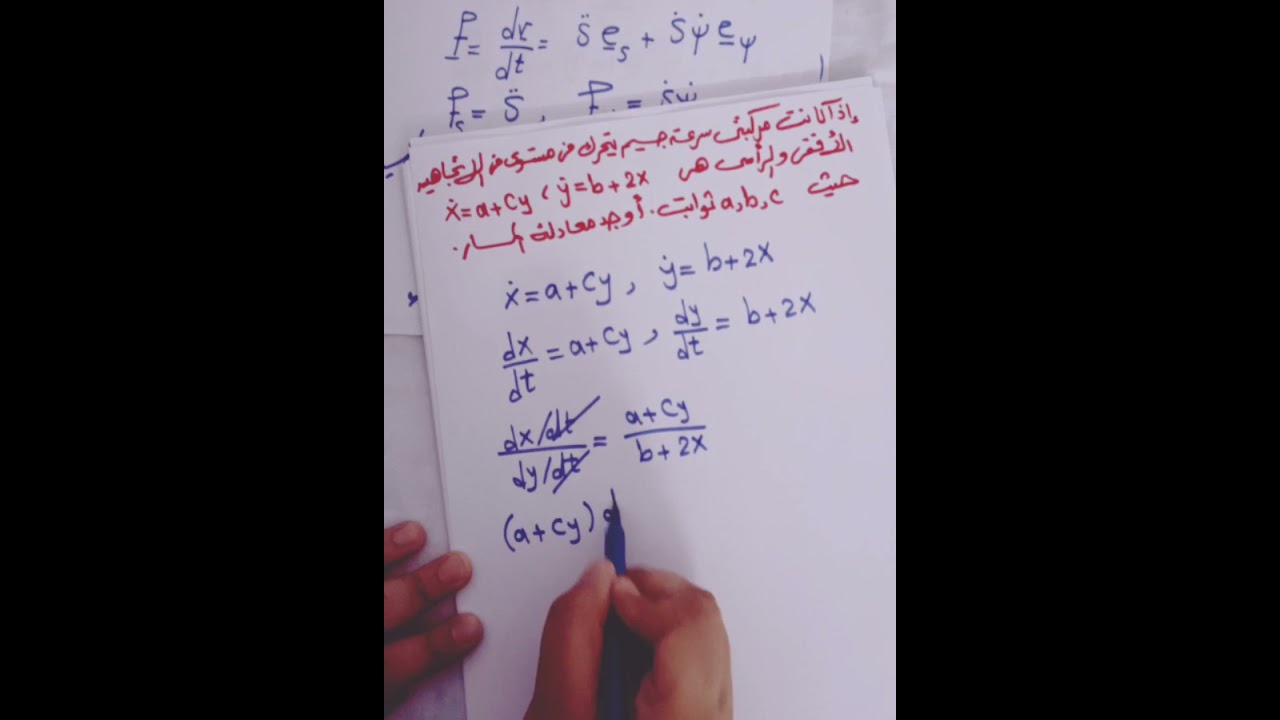 f = dr/dt = S̈ e_s + Ṡ ψ̇ e_ψ
f_s = S̈ , f = Ṡψ̇
إذا كانت مركبتى سرعة جسيم يتحرك فى مستوى فى الاتجاهين
الأفقى والرأسى هى ẋ=a+Cy ، ẏ=b+2x
حيث a,b,c ثوابت. أوجد معادلة المسار.
ẋ = a+Cy , ẏ = b+2x
dx/dt = a+Cy , dy/dt = b+2x
(dx/dt)/(dy/dt) = (a+Cy)/(b+2x)
(a+Cy) d